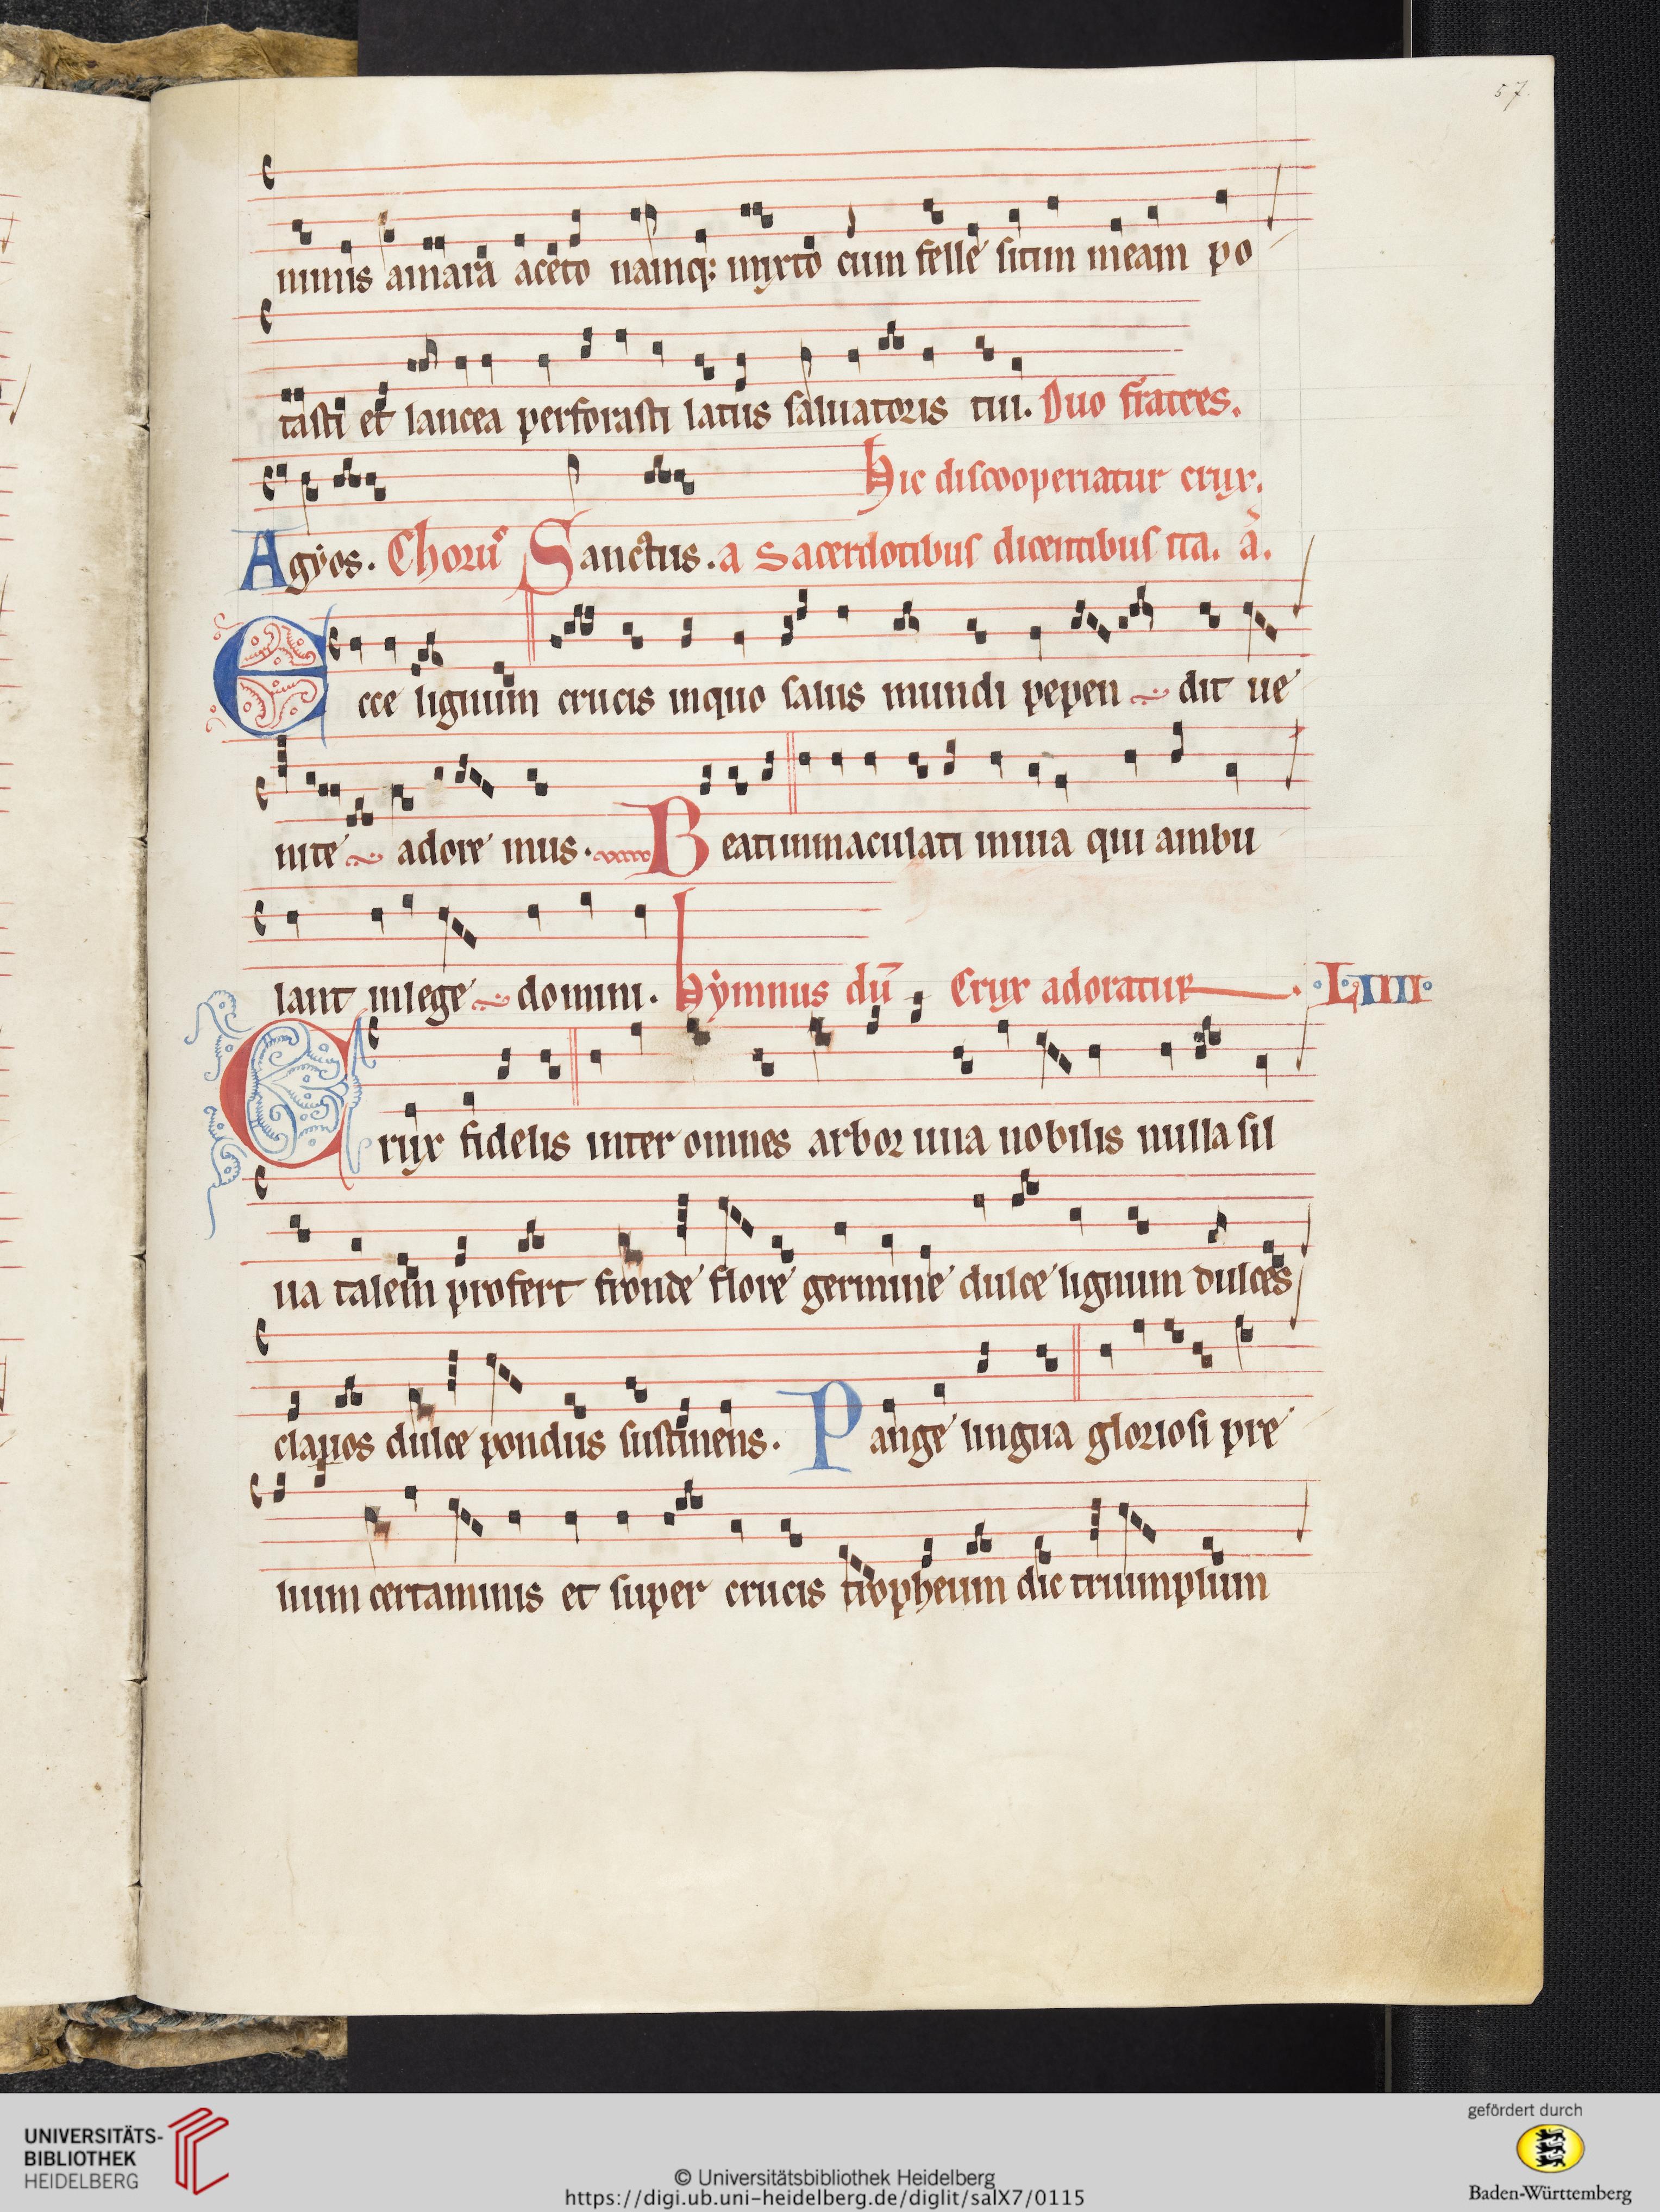 57.
nimis amara aceto namq; myrto cum felle sitim meam po
tasti et lancea perforasti latus saluatoris tui. Duo fratres.
Hic discooperiatur crux.
Agyos. Chorus Sanctus. a Sacerdotibus dicentibus ita. a.
Ecce lignum crucis inquo salus mundi pepen dit ue
nite adore mus. Beati inmaculati inuia qui ambu
lant inlege domini. Hymnus dū Crux adoratur. ·LIIII·
Crux fidelis inter omnes arbor una nobilis nulla sil
ua talem profert fronde flore germine dulce lignum dulces
clauos dulce pondus sustinens. Pange lingua gloriosi pre
lium certaminis et super crucis tropheum dic triumphum
UNIVERSITÄTS-
BIBLIOTHEK
HEIDELBERG
© Universitätsbibliothek Heidelberg
https://digi.ub.uni-heidelberg.de/diglit/salX7/0115
gefördert durch
Baden-Württemberg